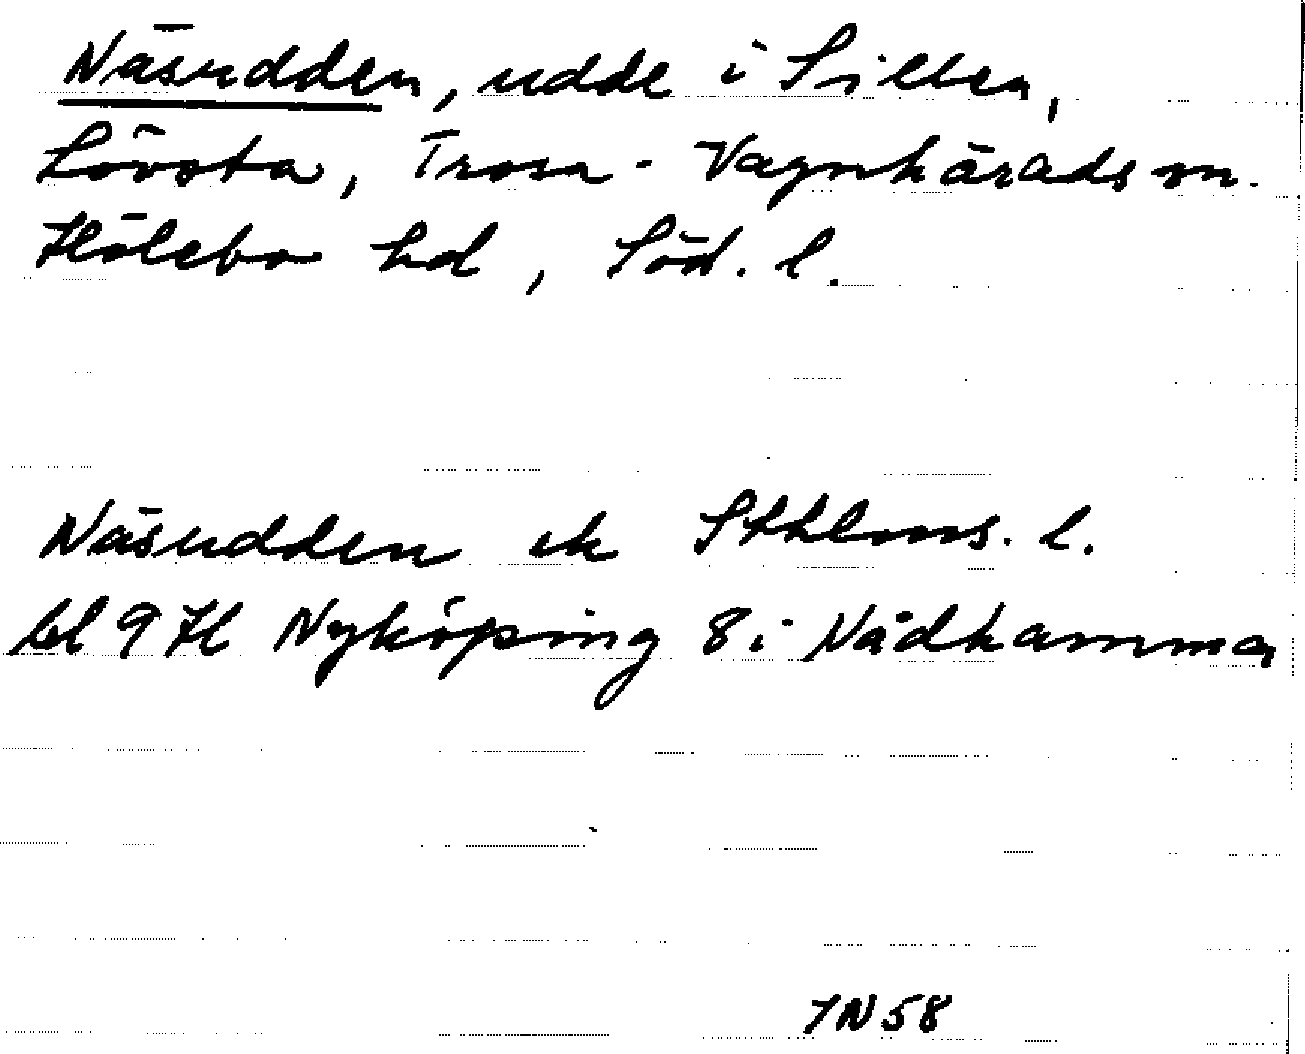 Näsudden, udde i Sillen,
Lövsta, Trosa-Vagnhärads sn.
Hölebo hd, Söd. l.
Näsudden ek Sthlms. l.
bl 9 H Nyköping 8 i Nådhamma
7N58